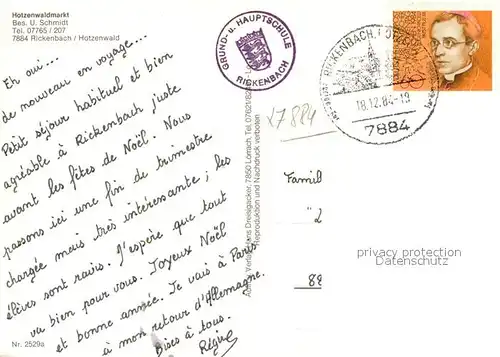 Hotzenwaldmarkt
Bes. U. Schmidt
Tel. 07765 / 207
7884 Rickenbach / Hotzenwald
Eh oui...
de nouveau en voyage...
Petit séjour habituel et bien
agréable à Rickenbach juste
avant les fêtes de Noël. Nous
passons ici une fin de trimestre
chargée mais très intéressante ; les
élèves sont ravis. J'espère que tout
va bien pour vous. Joyeux Noël
et bonne année. Je vais à Paris
à mon retour d'Allemagne.
Bises à tous.
Nr. 2529a
GRUND- u. HAUPTSCHULE
RICKENBACH
RICKENBACH
18.12.84-19
7884
27884
Dreisgacker, 7850 Lörrach, Tel. 07621/
Reproduktion und Nachdruck verboten
Famil
2
82
privacy protection
Datenschutz